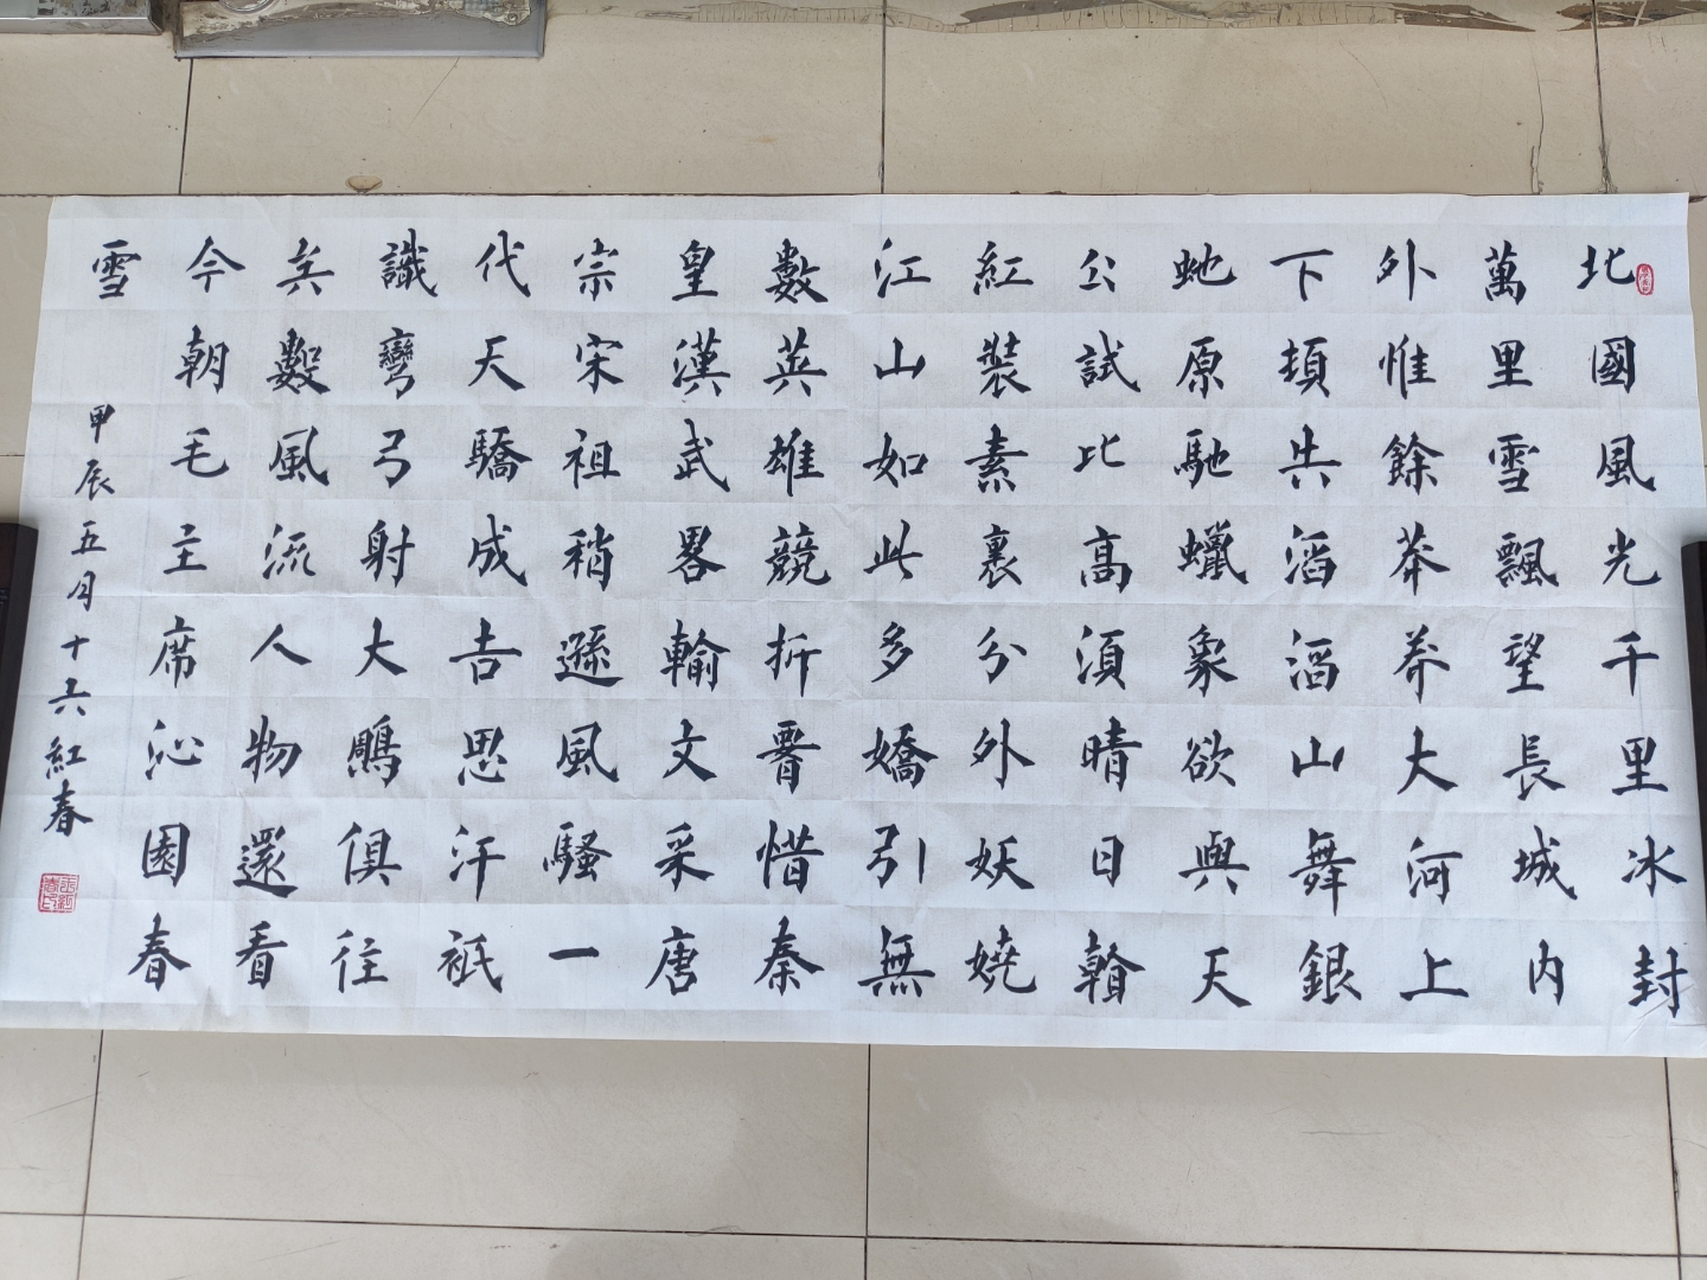 北國風光千里冰封
萬里雪飄望長城内
外惟餘莽莽大河上
下頓失滔滔山舞銀
蛇原馳蠟象欲與天
公試比高須晴日看
紅裝素裹分外妖嬈
江山如此多嬌引無
數英雄競折腰惜秦
皇漢武畧輸文采唐
宗宋祖稍遜風騷一
代天驕成吉思汗祇
識彎弓射大鵰俱往
矣數風流人物還看
今朝毛主席沁園春
雪
甲辰五月十六紅春